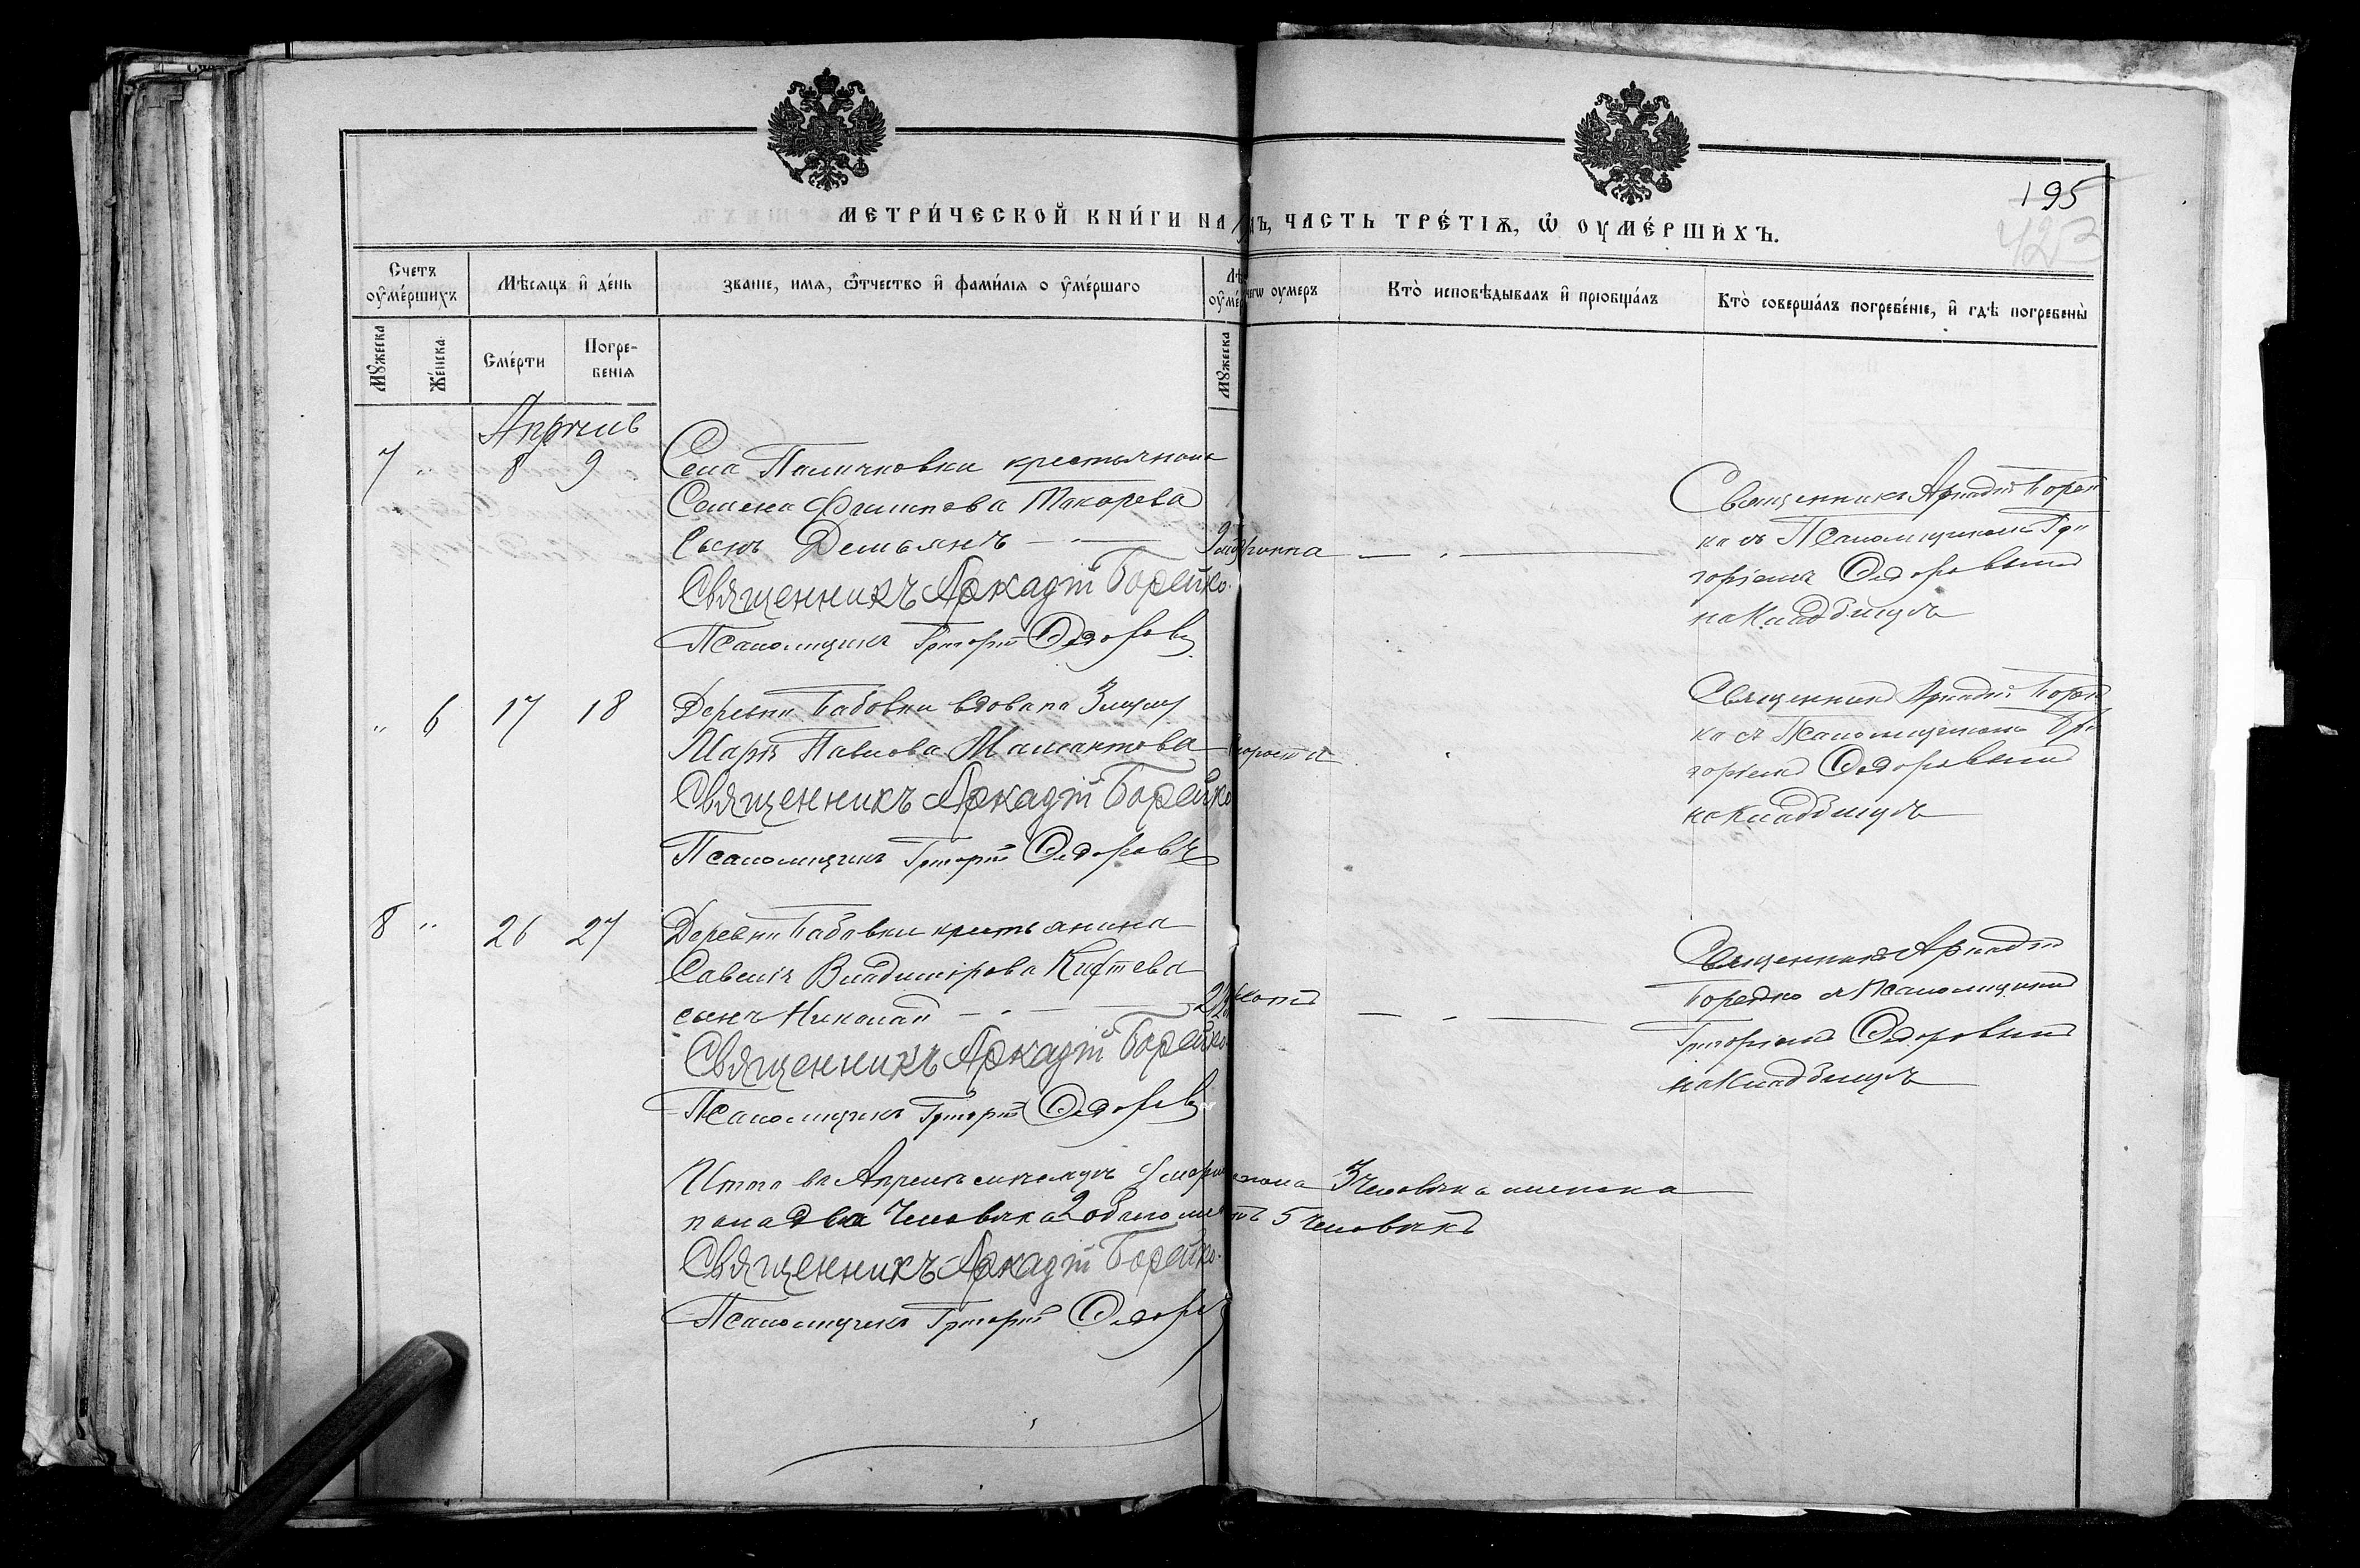 195
423
МЕТРИ́ЧЕСКОЙ КНИ́ГИ НА ЧАСТЬ ТРЕ́ТІѦ, Ѡ҆ ОУМЕ́РШИХЪ.
Счетъ оу҆ме́ршихъ
Мѣсяцъ и҆ де́нь
званіе, имя, ѿчество и҆ фами́лія о у҆ме́ршаго
оумеръ
Кто̀ исповѣдывалъ и҆ пріобща́лъ
Кто̀ соверша́лъ погребе́ніе, и҆ гдѣ погребены̀
Мꙋжеска
Же́нска
Сме́рти
Погре-
бенія
Мꙋжеска
Апрѣль
7 " 8 9
Села крестьянина
Семена Филипова Токарева
сынъ Демьянъ
Священникъ Аркадій Борейко.
Псаломщикъ Григорій Ѳедоровъ
Священникъ Аркадій Борей
ко съ Псаломщикомъ Гри
горіемъ Ѳедоровымъ
на кладбищѣ
" 6 17 18
Деревни Бабовки вдова
Марія Павлова Мамантова
Священникъ Аркадій Борейко
Псаломщикъ Григорій Ѳедоровъ
Священникъ Аркадій Борей
ко съ Псаломщикомъ Гри
горіемъ Ѳедоровымъ
на кладбищѣ
8 " 26 27
Деревни Бабовки крестьянина
Савелія Владимірова
сынъ Николай
Священникъ Аркадій Борейко
Псаломщикъ Григорій Ѳедоровъ
Священникъ Аркадій
Борейко съ Псаломщикомъ
Григоріемъ Ѳедоровымъ
на кладбищѣ
Итого въ Апрелѣ мѣсяцѣ 3 человѣка женска
пола два человѣка 2 обоего 5 человѣкъ
Священникъ Аркадій Борейко.
Псаломщикъ Григорій Ѳедоровъ